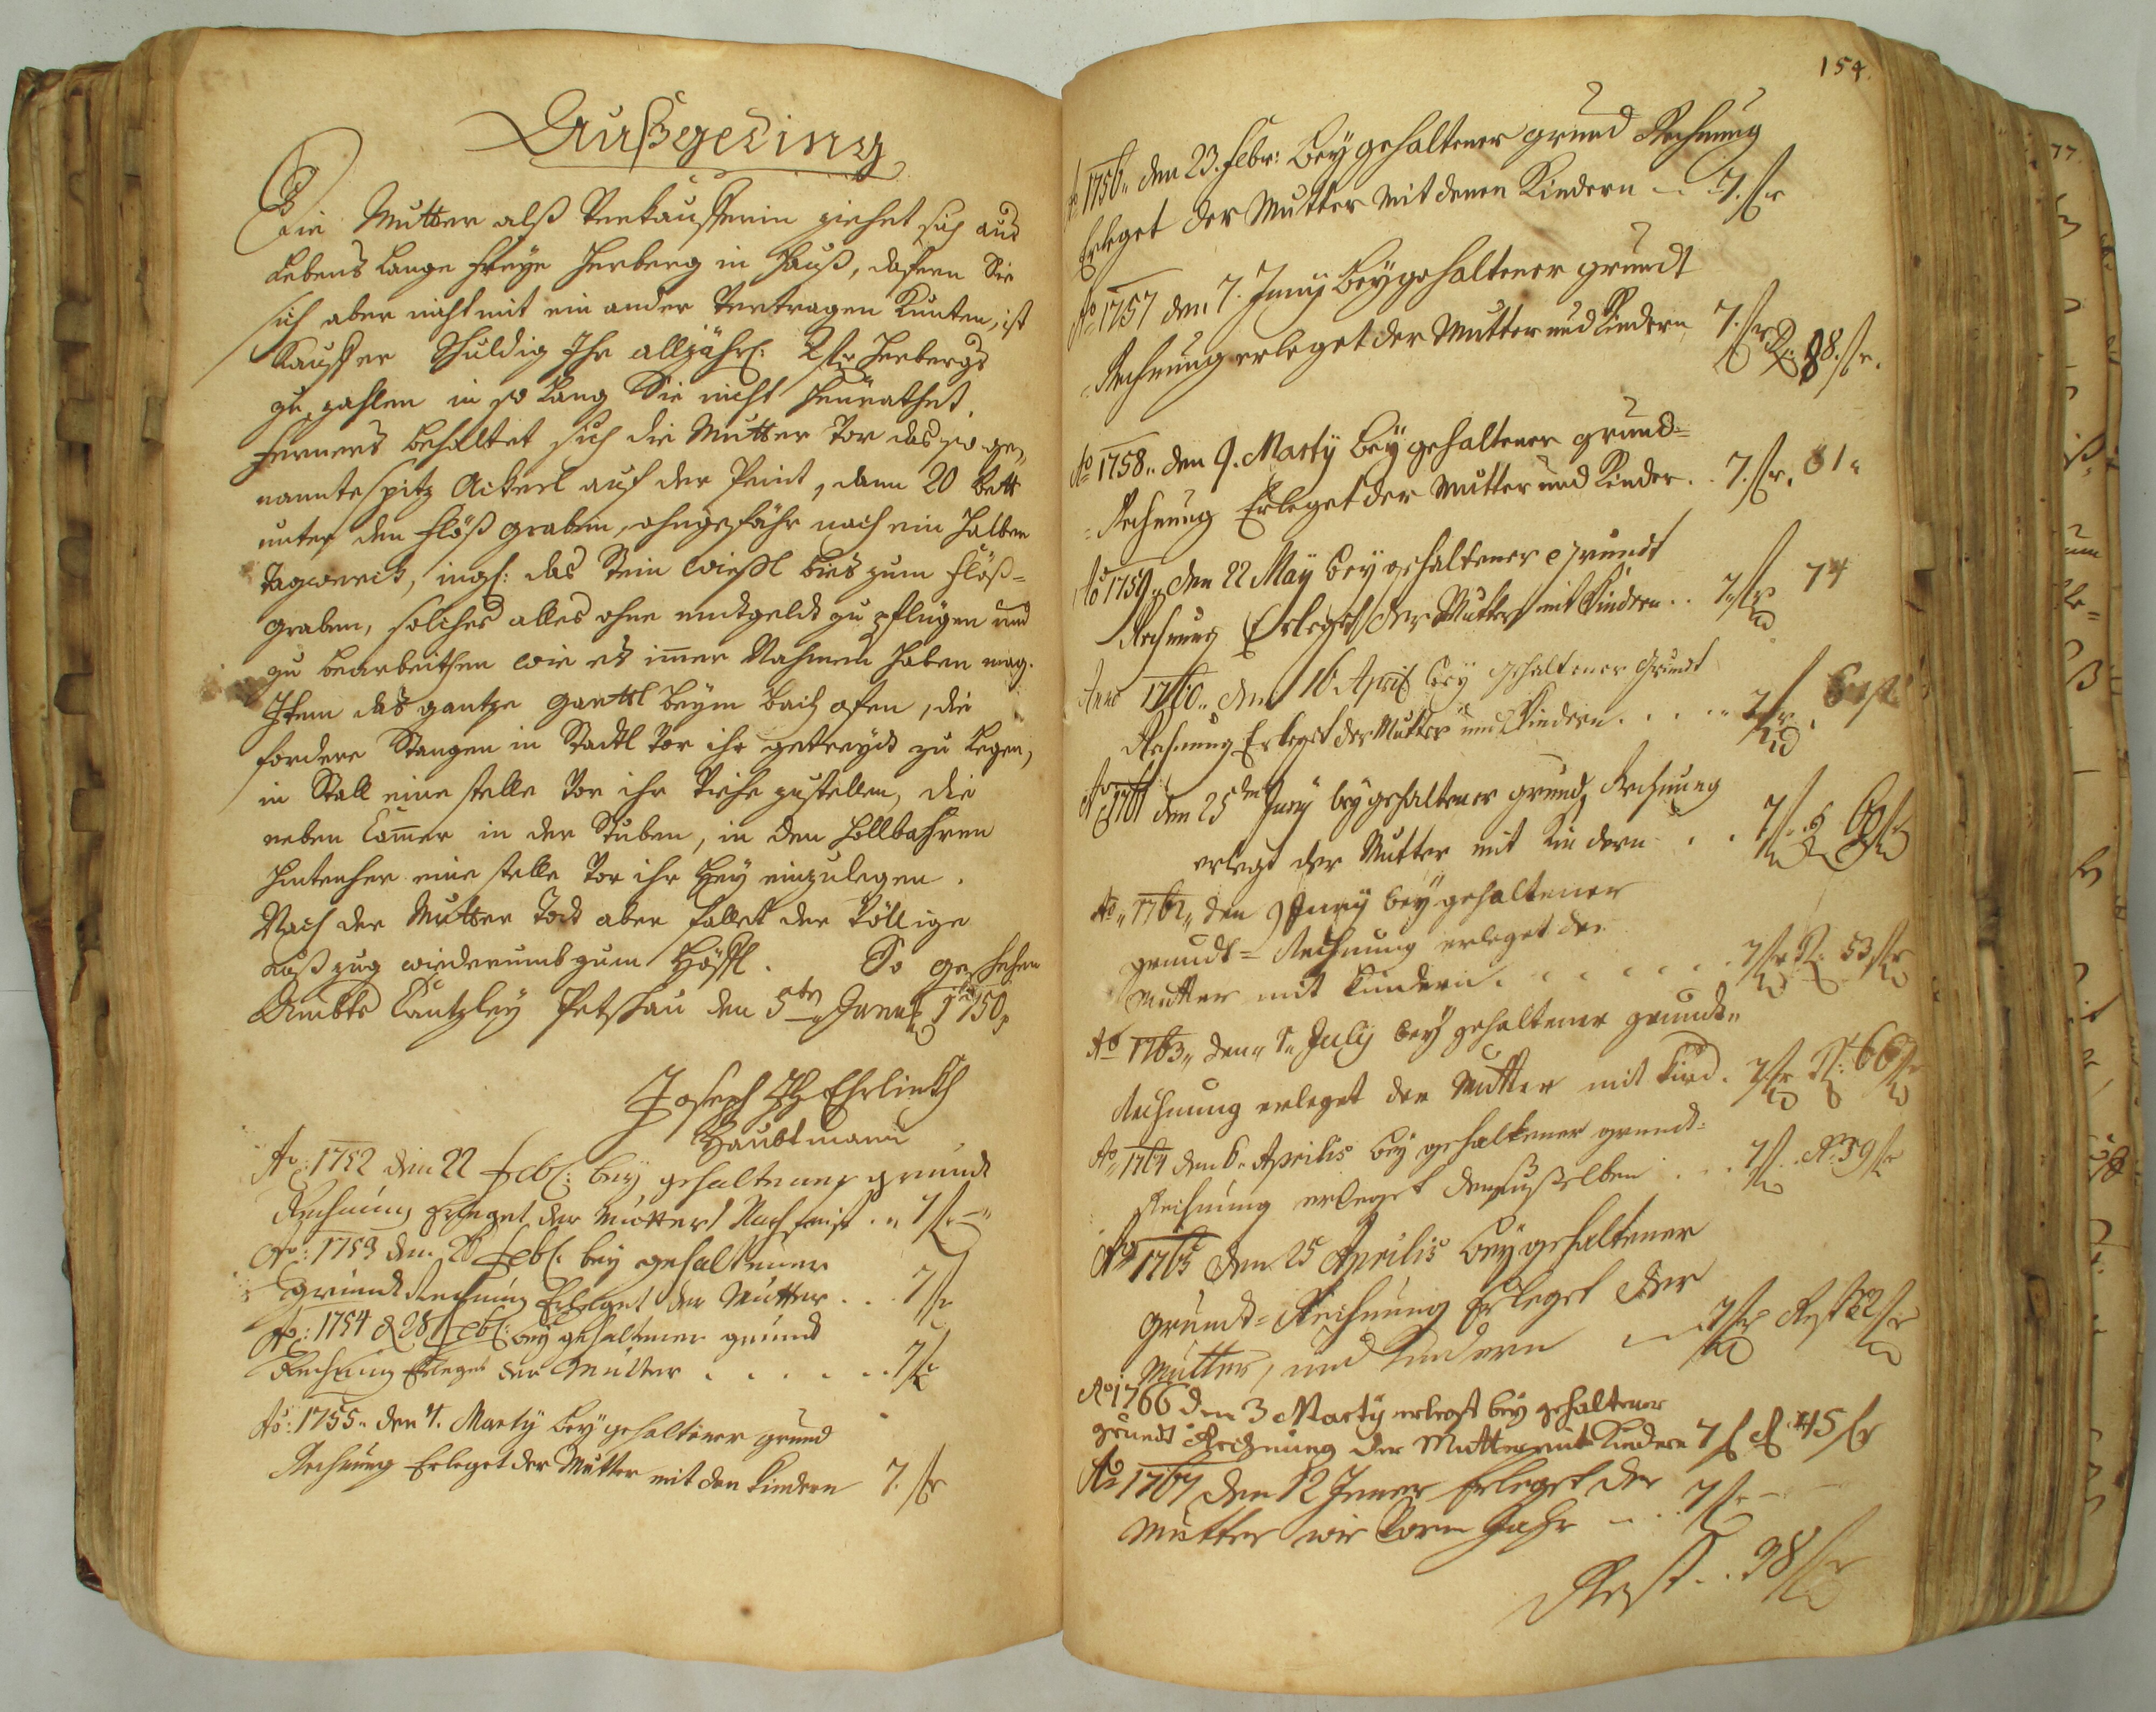 Außgeding
Die Mutter alß Verkaufferin ziehet sich aus
Lebens Lange freye Herberg in Hauß, dafern Sie
sich aber nicht mit ein ander Vertragen Kunten, ist
Kauffer Schuldig Ihr alljährl: 2 fr Herbergs
zu zahlen in so Lang Sie nicht Heurathet.
Ferners behaltet sich die Mutter Vor das so ge„
nannte Spitz Ackerl auf der Peint, dann 20 Bett
unter den flöß graben, ohngefähr noch ein Halben
Tagwerck, ingl: das Stein Wießl bies zum flöß=
graben, solches alles ohne endtgeldt zu pflügen und
zu bearbeithen wie es imer Nahmen haben mag.
Item das gantze Garttl beym bach ofen, die
fordere Stangen in Stadtl Vor ihr getreyd zu Legen,
in Stall eine stelle Vor ihr Viehe zustellen, die
neben Camer in der Stuben, in den Hollbahren
hintenher eine stelle Vor ihr Hey einzulegen.
Nach der Mutter Todt aber fallet der Völlige
Außzug wiederumb zum Höffl. So geschehen
Ambts Cantzley Petschau den 5ten 1750
Joseph Ehrlich
Haubtmann
Ao: 1752 den 22 feb: bey gehaltener grundt
Rechnung Erleget der Mutter 7 fr
Ao: 1753 den 26 feb: bey gehaltener
Grundt Rechnung Erleget der Mutter . . . 7 fr
Ao: 1754 d 28 feb: bey gehaltener grundt
Rechnung Erleget der Mutter . . . . . . 7 fr
Ao: 1755„ den 4. Martÿ beÿ gehaltener grund
Rechnung Erleget der Mutter mit den Kindern 7. fr
154.
Ao 1756„ den 23. febr: beÿ gehaltener grund Rechnung
Erleget der Mutter mit denen Kindern 7. fr
Ao 1757 den 7. Junÿ beÿ gehaltener grundt
= Rechnung erleget der Mutter und Kindern 7. fr R: 88. fr.
Ao 1758„ den 9. Martÿ beÿ gehaltener grund=
= Rechnung Erleget der Mutter und Kinder . . 7. fr. 81„
Ao 1759„ den 22 Maÿ beÿ gehaltener Grundt
Rechnung Erleget der Mutter mit Kindern . . 7. fr 74
Anno 1760„ den 16 April beÿ gehaltener Grundt
Rechnung Erleget der Mutter und Kindern . . . . . 7 fr
Ao 1761 den 25ten Junÿ beÿ gehaltener grund Rechnung
erlegt der Mutter mit Kindern . . . 7 fr 60 fr
Ao„ 1762„ den 9 Junÿ beÿ gehaltener
grundt= Rechnung erleget der
Mutter mit Kindern . . . . . . . 7 fr R: 53 fr
Ao 1763„ den 1„ Julÿ beÿ gehaltener grundt„
Rechnung erleget der Mutter mit Kind. 7 fr R: 66 fr
Ao„ 1764 den 6. Aprilis beÿ gehaltener grundt=
Rechnung erleget . . . 7 fr R: 59 fr
Ao 1765 den 25 Aprilis beÿ gehaltener
grundt= Rechnung Erleget der
Mutter, und Kindern 7 fr Rest 52 fr
Ao 1766 den 3 Martÿ erlegt beÿ gehaltener
grundt Rechnung der Mutter mit Kindern 7 f 45 fr
Ao 1767 den 12 Jenner Erleget der
Mutter wie Vorn Jahr . . 7 fr
Rest . . 38 fr